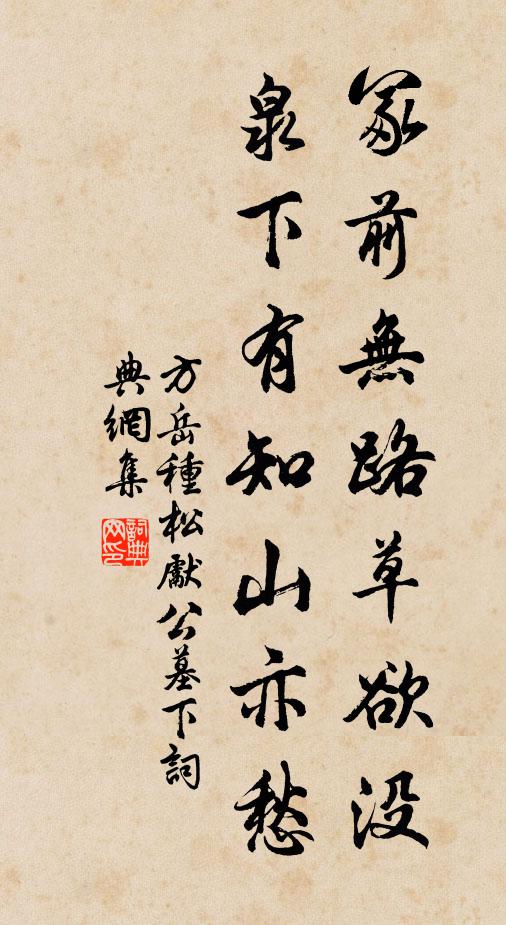 冢前無路草欲没
泉下有知山亦愁
方岳種松獻公墓下詞
典網集
詞典
网印